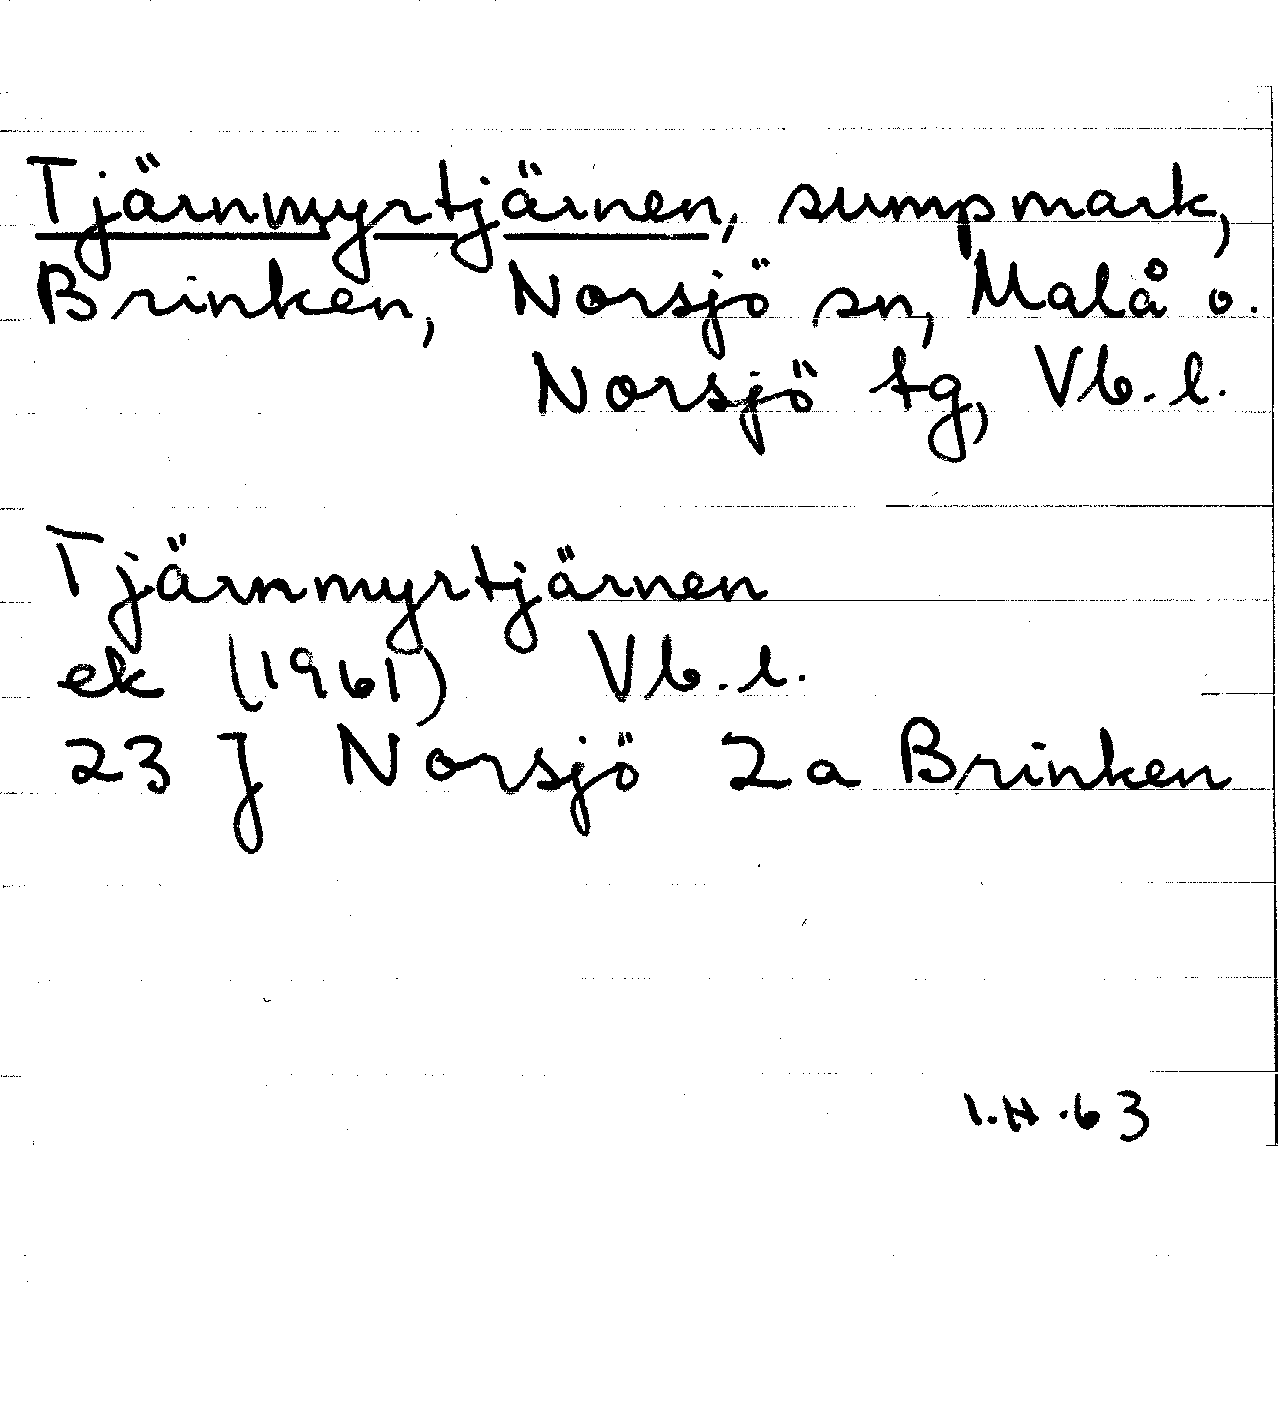 Tjärnmyrtjärnen, sumpmark,
Brinken, Norsjö sn, Malå o.
Norsjö tg, Vb. l.
Tjärnmyrtjärnen
ek (1961) Vb. l.
23 J Norsjö 2a Brinken
I.H.63